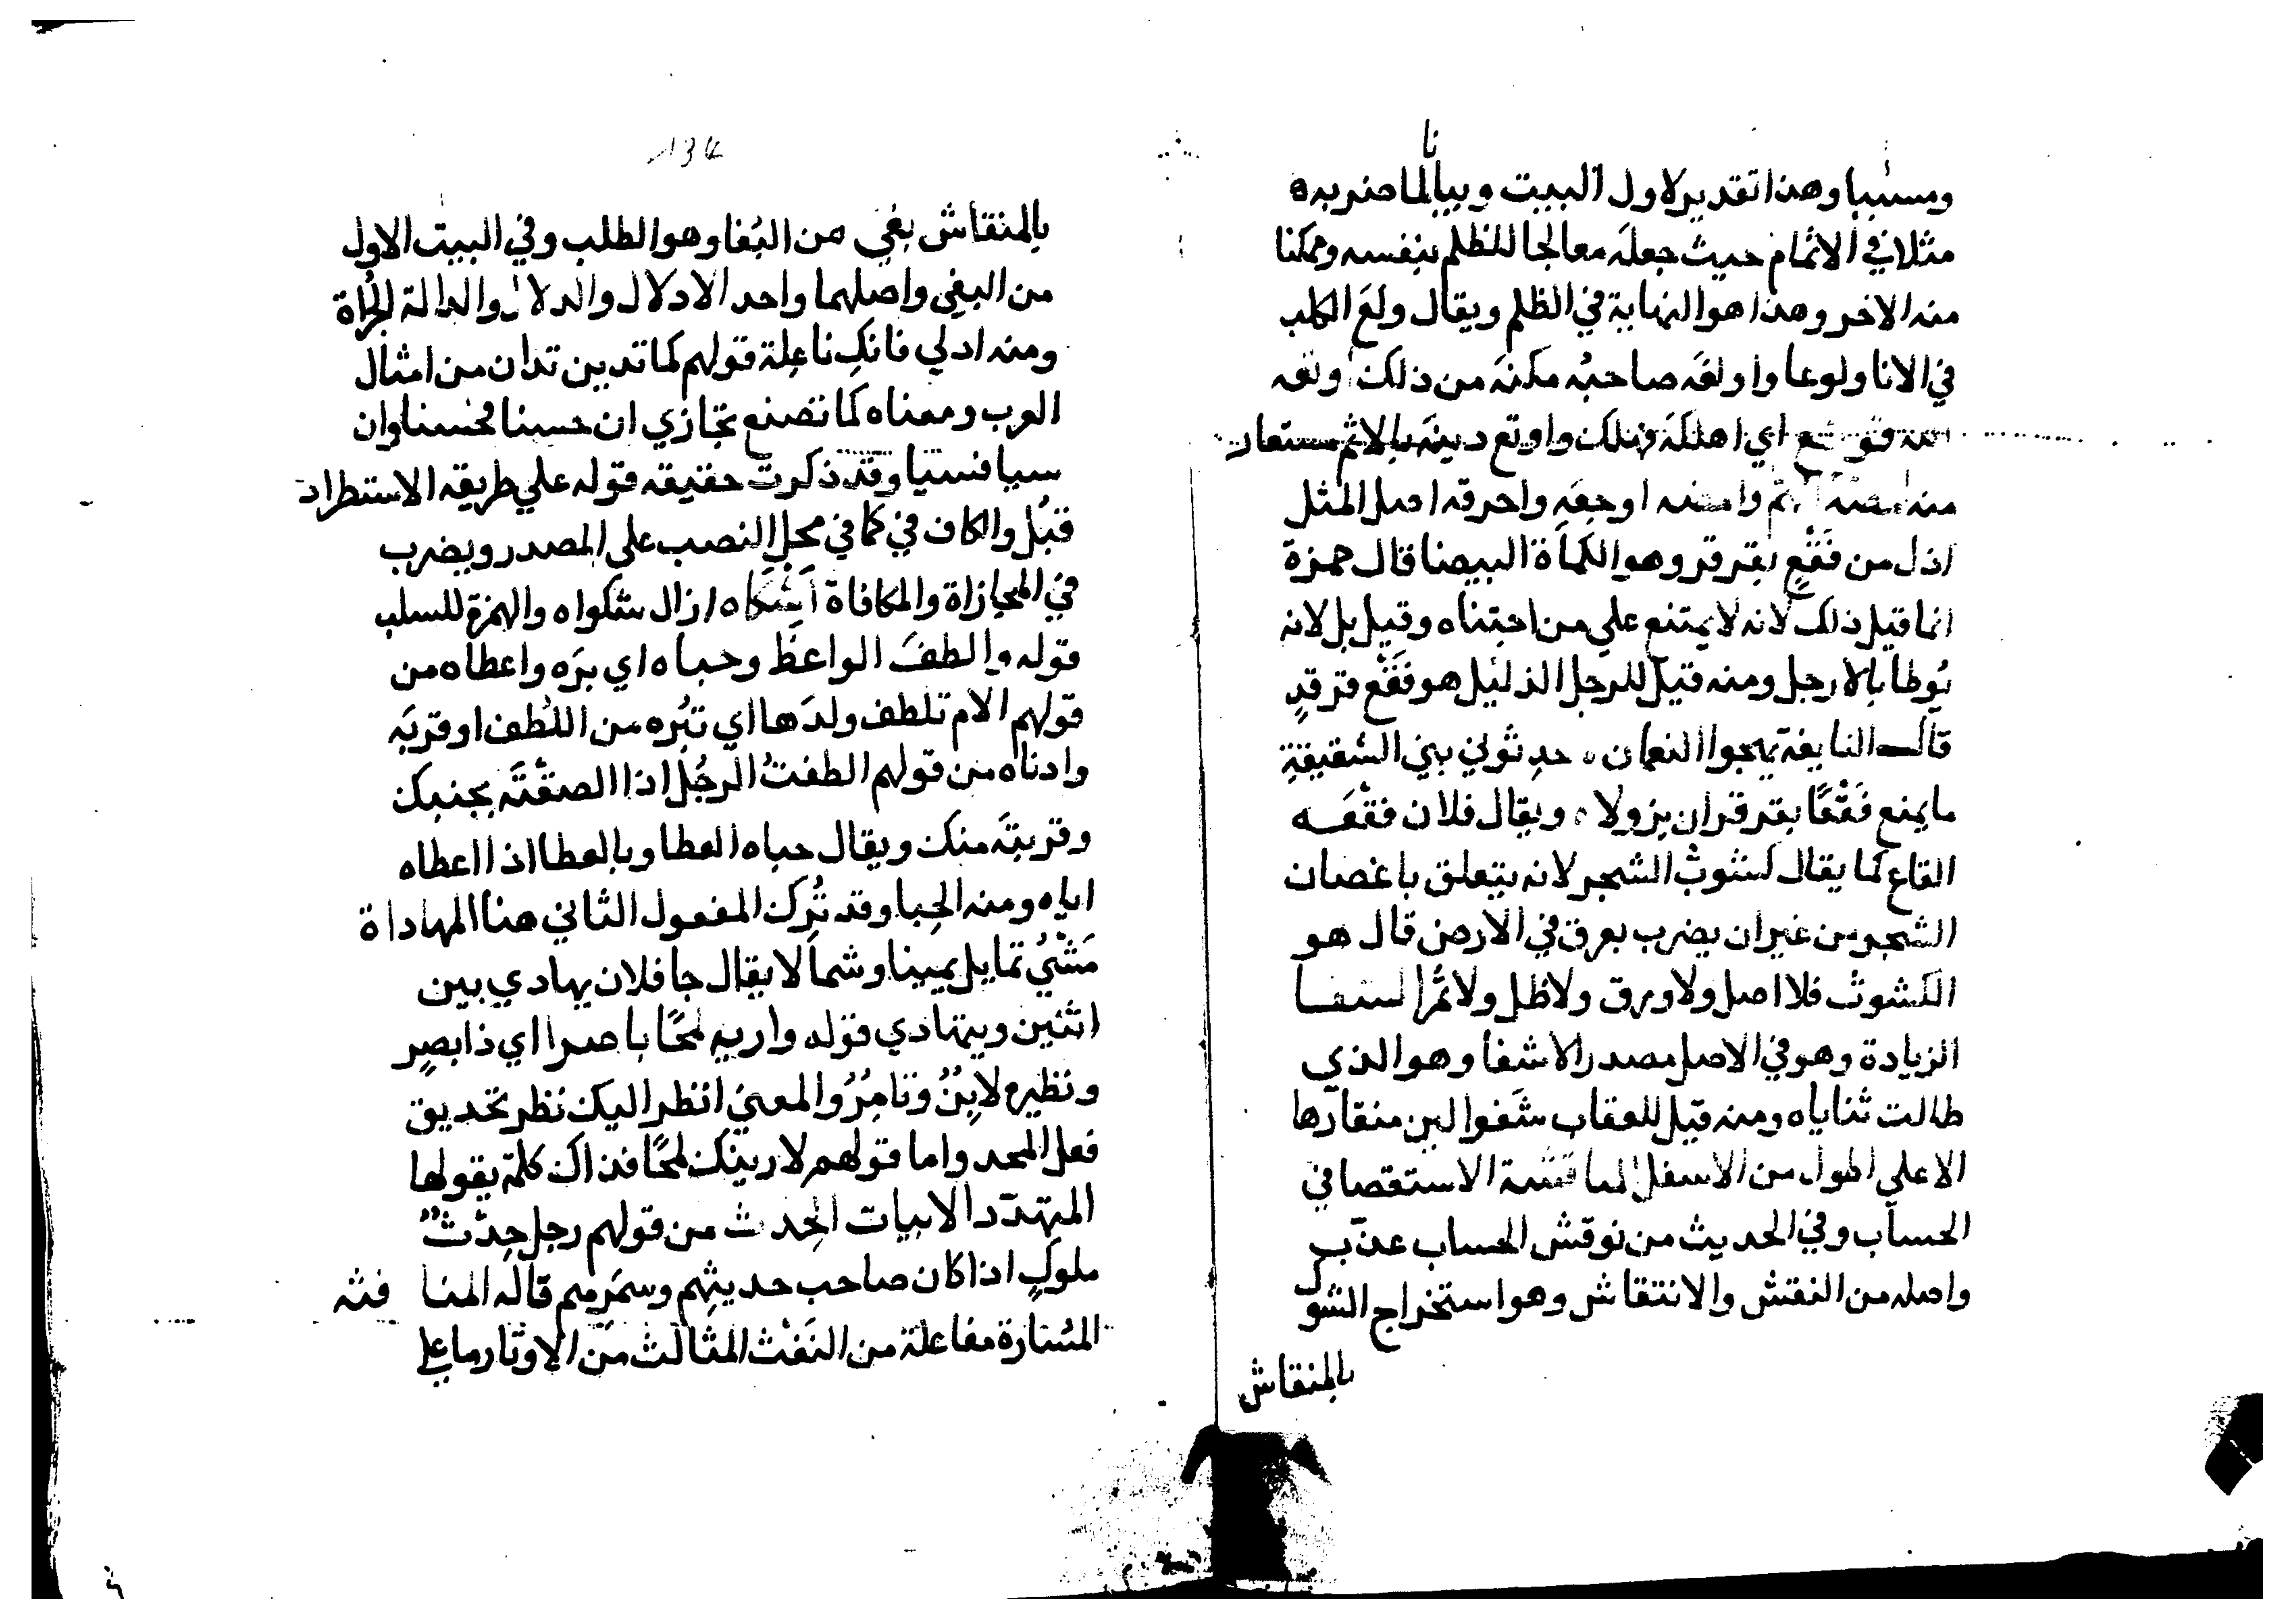 نا
ومسببا وهذا تقدير لاول البيت وبيا لما ضربه
مثلا في الاثمام حيث جعله معالجا للظلم بنفسه وممكنا
منه الاخر وهذا هو النهاية في الظلم ويقال ولغ الكلب
في الانا ولوغا واولغه صاحبه مكنه من ذلك
اي اهلكه فهلك واوتغ دينه بالاثم مستعار
منه اوجعه واحرقه اصل المثل
اذل من فَقْعٍ بقرقر وهو الكمأة البيضا قال حمزة
انما قيل ذلك لانه لا يمتنع علي من اجتناه وقيل بل لانه
يُوطا بالارجل ومنه قيل للرجل الذليل هو فَقْع قرقدٍ
قال النابغة يهجوا النعمان ه حدثوني بني الشقيقةِ
ما يمنع فَقْعًا بقرقر ان يزولا ه ويقال فلان فقْعَـه
القاع كما يقال كشوث الشجر لانه يتعلق باغصان
الشجر من غير ان يضرب بعرق في الارض قال هو
الكشوث فلا اصل ولا ورق ولا ظل ولا ثمر
الزيادة وهو في الاصل مصدر الاشفا وهو الذي
طالت ثناياه ومنه قيل للعقاب شَغوا لبن منقارها
الاعلي اطول من الاسفل الاستقصا في
الحساب وفي الحديث من نوقش الحساب عذب
واصله من النقش والانتقاش وهو استخراج الشوك
بالمنقاش
134
بالمنقاش بغي من البُغا وهو الطلب وفي البيت الاول
من البغي واصلهما واحد الادلال والدلال والدالة الجُراة
ومنه ادلي فانكِ فاعِلة قولهم كما تدين تدان من امثال
العرب ومعناه كما تصنع تجازي ان حسنا فحسنا وان
سيا فسيا وقد ذكرت حقيقه قوله علي طريقه الاستطراد
قبْل والكاف في كما في محل النصب علي المصدر ويضرب
في المجازاة والمكافاة اَشْكَاه ازال شكواه والهمزة للسلب
قوله والطفَ الواعظَ وحباه اي برَه واعطاه من
قولهم الام تلطف ولدَها اي تبُره من اللُطف او قربَه
وادناه من قولهم الطفتُ الرجُل اذا الصقْتَه بجنبك
وقربتَه منك ويقال حباه العطا وبالعطا اذا اعطاه
اياه ومنه الحِبا وقد تُرك المفعول الثاني هنا المهاداة
مَشْيُ تمايل يمينا وشمالا يقال جا فلان يهادي بين
اثنين ويتهادي قوله واريه لمحًا باصرا اي ذا بصرٍ
ونظيره لابِنٌ وتامِرٌ والمعني انظر اليك نظر تحديق
فعل المحد واما قولهم لارينك لمحًا فذاك كلمة يقولها
المتهدّد الابيات الحِدث من قولهم رجل حِدْثُ
ملوكٍ اذا كان صاحب حديثهم وسمَرِهم قاله المنافثه
المسارة مفاعلة من النَفْث المثالث من الاوتار ما علي